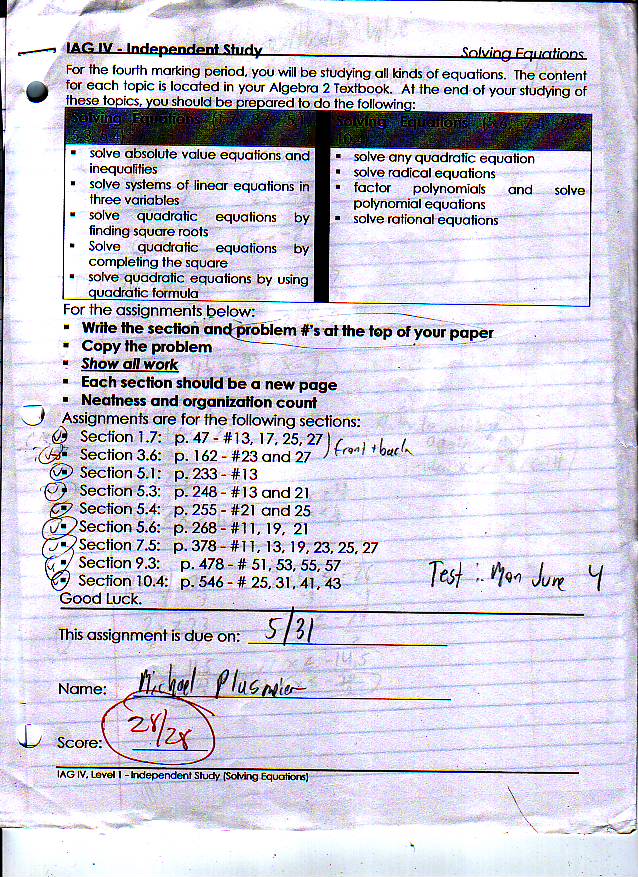 IAG IV - Independent Study Solving Equations
For the fourth marking period, you will be studying all kinds of equations. The content
for each topic is located in your Algebra 2 Textbook. At the end of your studying of
these topics, you should be prepared to do the following:
Solving Equations
Solving Equations
▪ solve absolute value equations and
inequalities
▪ solve systems of linear equations in
three variables
▪ solve quadratic equations by
finding square roots
▪ Solve quadratic equations by
completing the square
▪ solve quadratic equations by using
quadratic formula
▪ solve any quadratic equation
▪ solve radical equations
▪ factor polynomials and solve
polynomial equations
▪ solve rational equations
For the assignments below:
▪ Write the section and problem #'s at the top of your paper
▪ Copy the problem
▪ Show all work
▪ Each section should be a new page
▪ Neatness and organization count
Assignments are for the following sections:
▪ Section 1.7: p. 47 - #13, 17, 25, 27
front + back
▪ Section 3.6: p. 162 - #23 and 27
▪ Section 5.1: p. 233 - #13
▪ Section 5.3: p. 248 - #13 and 21
▪ Section 5.4: p. 255 - #21 and 25
▪ Section 5.6: p. 268 - #11, 19, 21
▪ Section 7.5: p. 378 - #11, 13, 19, 23, 25, 27
▪ Section 9.3: p. 478 - # 51, 53, 55, 57
▪ Section 10.4: p. 546 - # 25, 31, 41, 43
Test : Mon June 4
Good Luck.
This assignment is due on: 5/31
Name: Michael
Score: 28/28
IAG IV, Level 1 - Independent Study (Solving Equations)